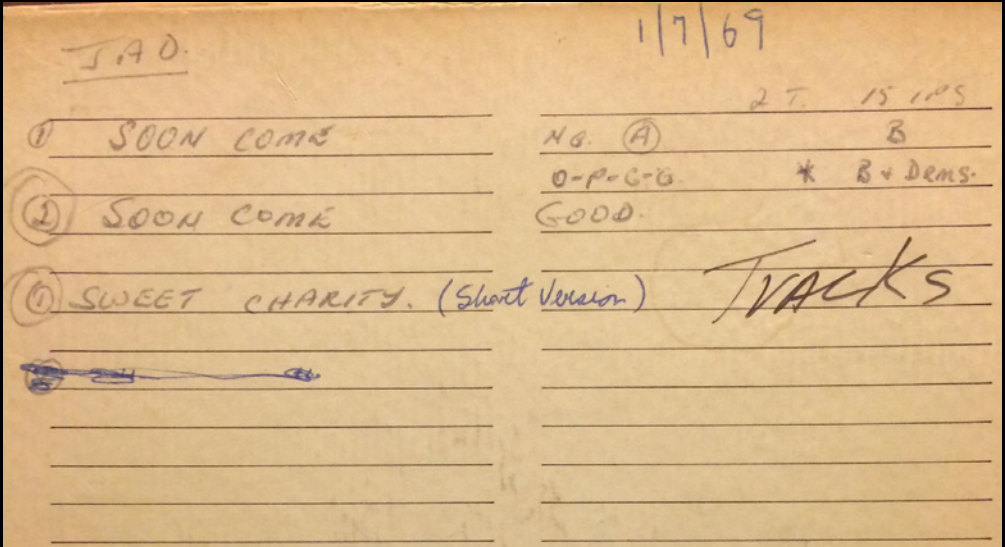 JAD.
1/7/69
2 T. 15 IPS
① SOON COME NG. Ⓐ B
O-P-G-G. * B + DRMS.
② SOON COME GOOD.
① SWEET CHARITY. (Short Version) TRACKS